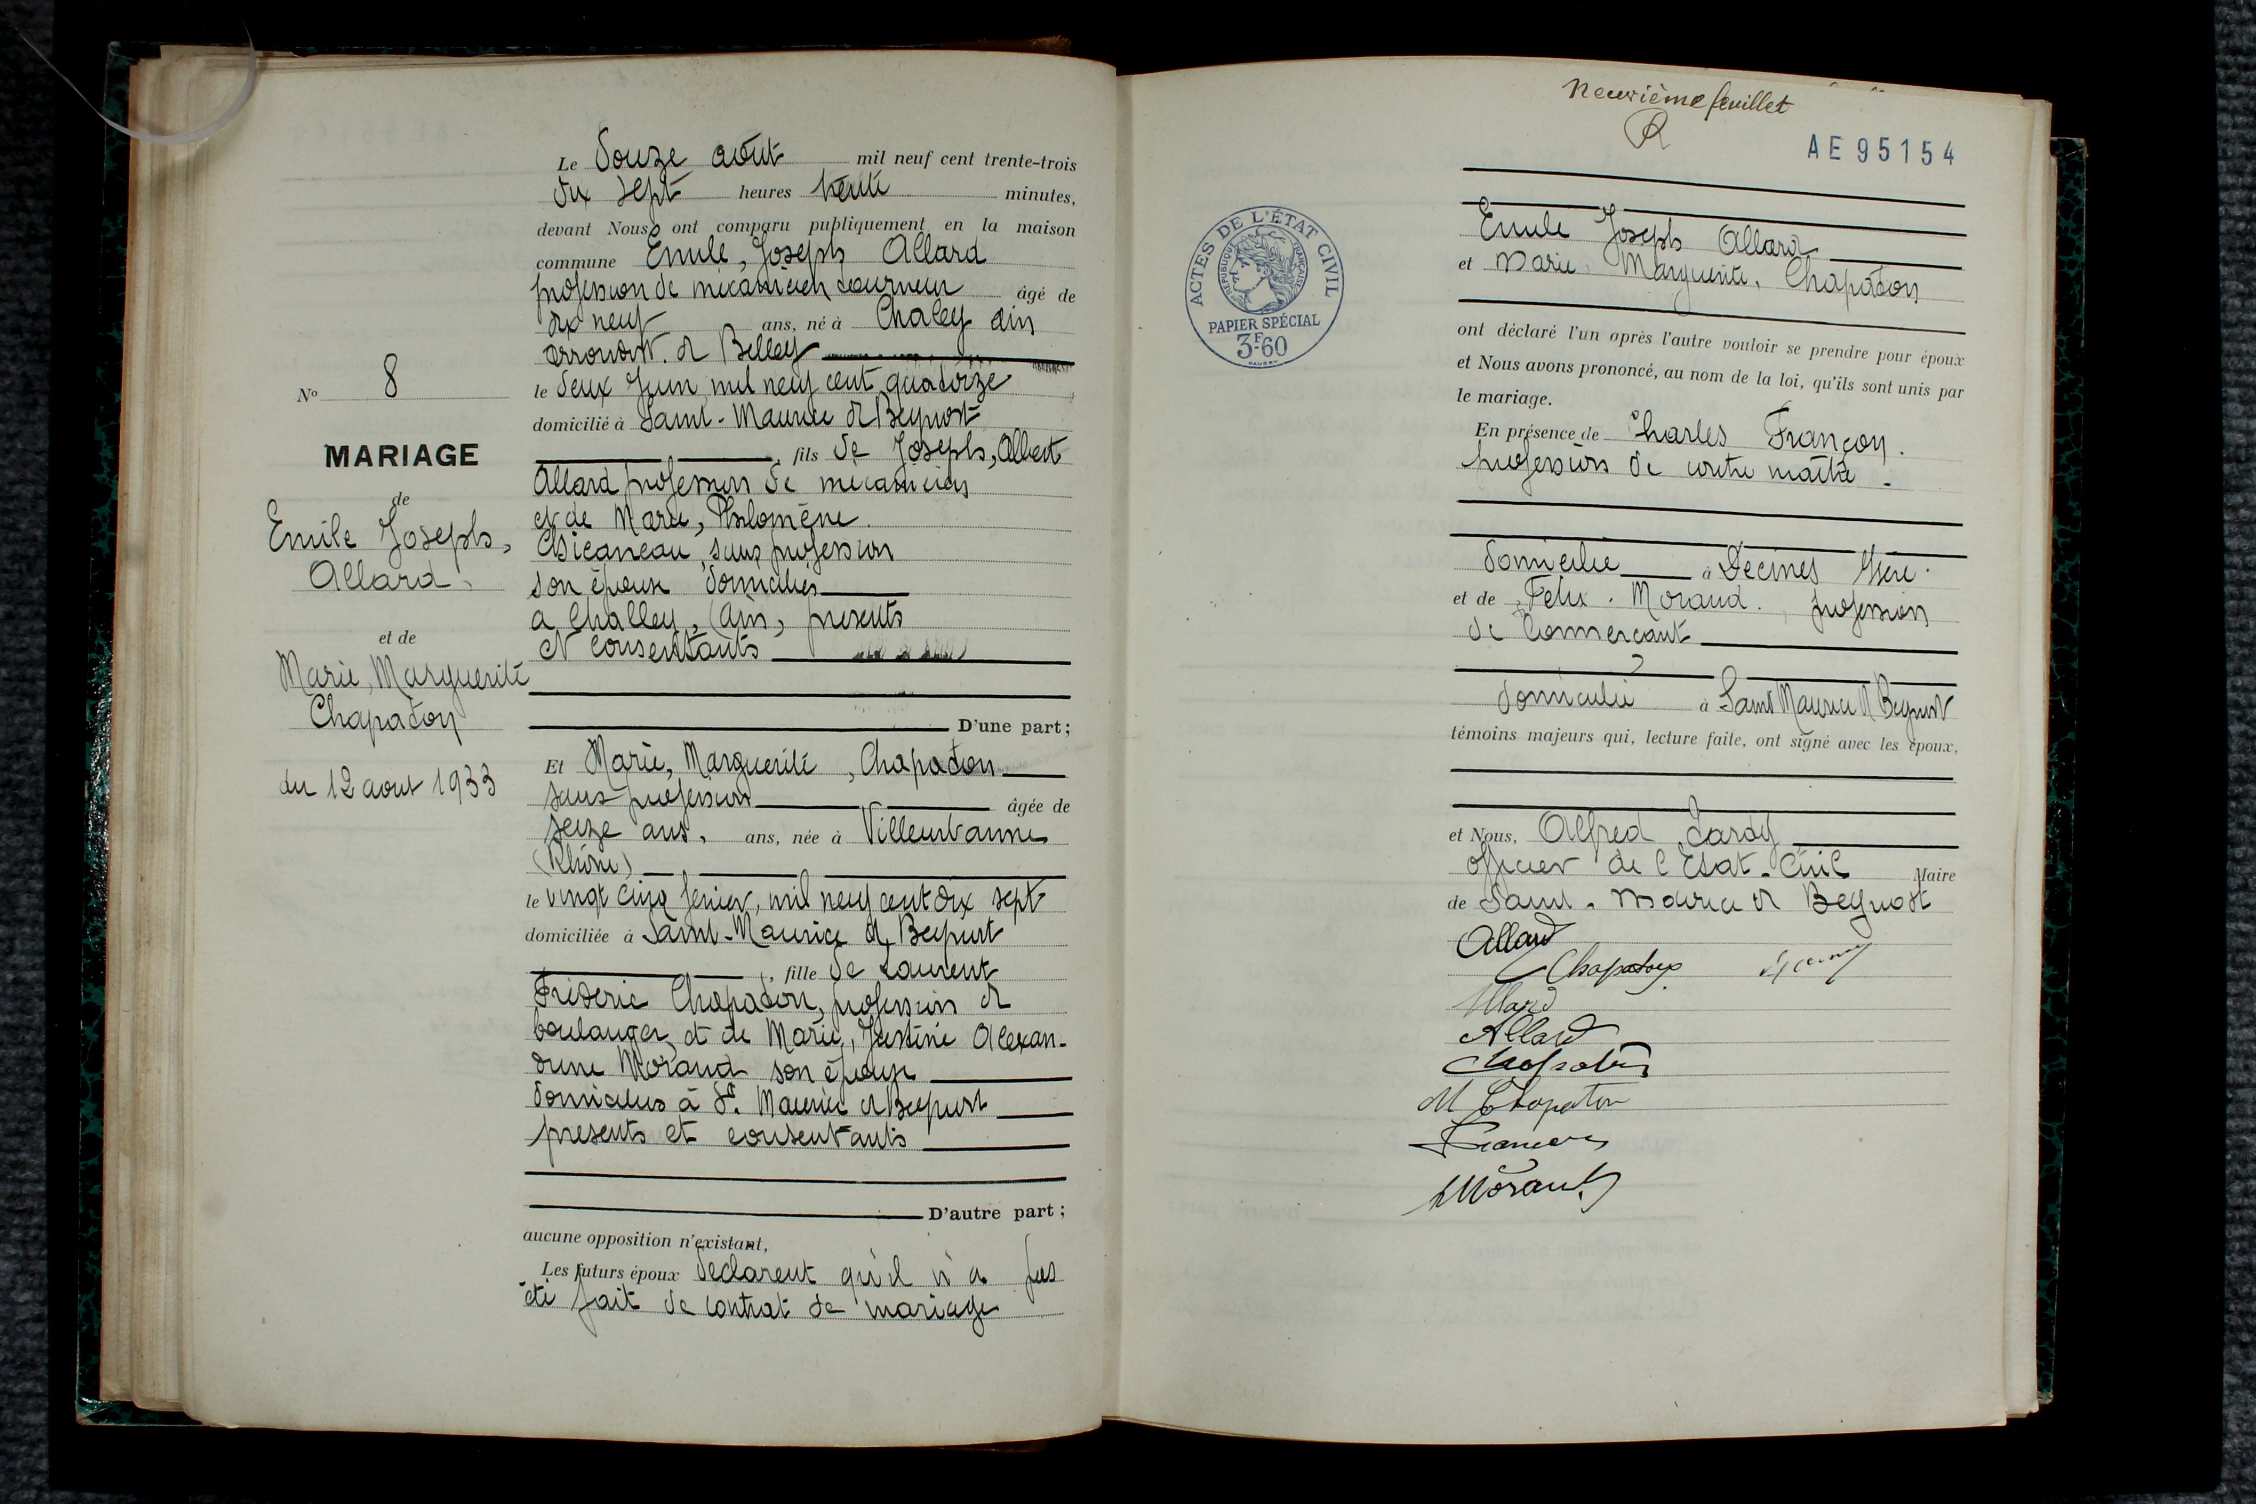 Le Douze août mil neuf cent trente-trois
dix sept heures trente minutes,
devant Nous ont comparu publiquement en la maison
commune Emile, Joseph Allard
profession de mécanicien tourneur âgé de
dix neuf ans, né à Chaley ain
arrondt. de Belley
le deux Juin mil neuf cent quatorze
domicilié à Saint-Maurice de Beynost
fils de Joseph, Albert
Allard profession de mécanicien
et de Marie, Philomène
sans profession
son épouse domiciliés
a Challey, (ain, presents
et consentants
D'une part;
Et Marie, Marguerite, Chapaton
sans profession âgée de
seize ans. ans, née à Villeurbanne
(Rhône)
le vingt cinq fevrier, mil neuf cent dix sept
domiciliée à Saint-Maurice de Beynost
, fille de Laurent
Fréderic Chapaton, profession de
boulanger et de Marie, Justine Alexan-
drine Morand son épouse
domiciliés à St. Maurice de Beynost
presents et consentants
D'autre part;
aucune opposition n'existant,
Les futurs époux declarent qu'il n'a pas
été fait de contrat de mariage
No 8
MARIAGE
de
Emile Joseph,
Allard,
et de
Marie, Marguerite
Chapaton
du 12 aout 1933
Neuvième feuillet
AE95154
ACTES DE L'ÉTAT CIVIL
RÉPUBLIQUE FRANÇAISE
PAPIER SPÉCIAL
3F60
Emile Joseph Allard
et Marie Marguerite, Chapaton
ont déclaré l'un après l'autre vouloir se prendre pour époux
et Nous avons prononcé, au nom de la loi, qu'ils sont unis par
le mariage.
En présence de Charles Françon.
profession de contre maître -
domicilié à Decines Isère.
et de Felix. Morand. profession
de Commerçant
domicilié à Saint Maurice de Beynost
témoins majeurs qui, lecture faite, ont signé avec les époux,
et Nous, Alfred
officier de l'Etat-Civil Maire
de Saint-Maurice de Beynost
Allard
Chapaton
Allard
Chapaton
M Chapaton
Morand